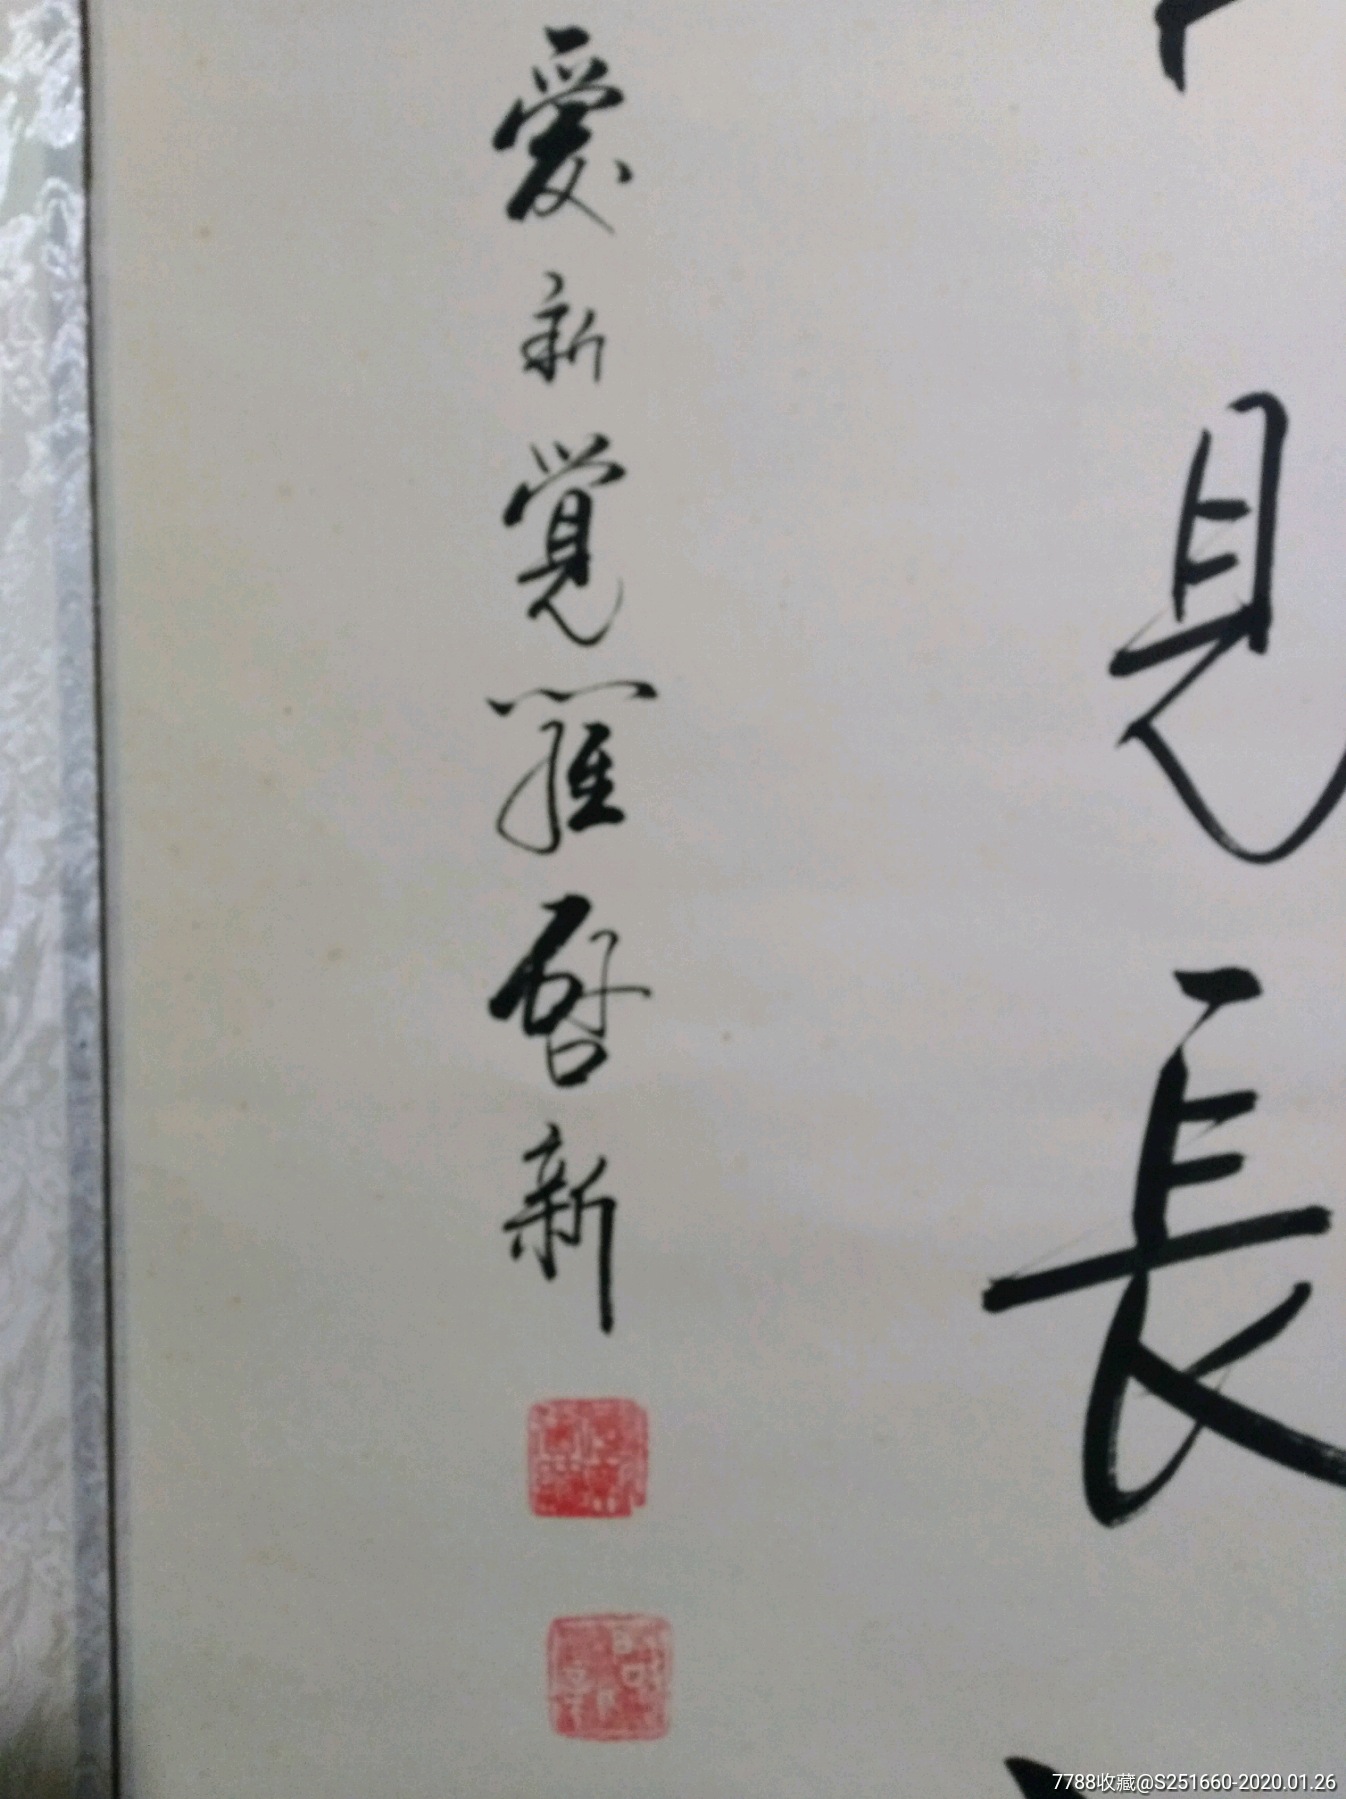 見長
愛新覺羅啓新
7788收藏@S251660-2020.01.26